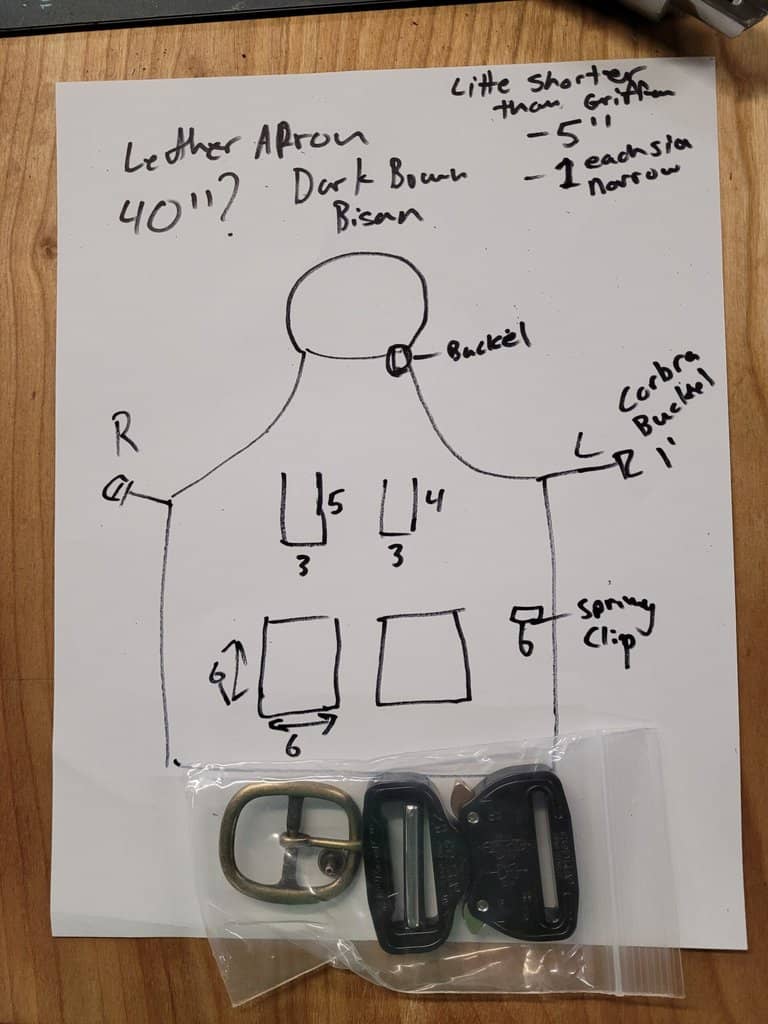 Litte shorter
than Griffen
- 5"
- 1 each sid
narrow
Lether APron
40"?
Dark Bown
Bisan
Buckel
R
L
Corbra
Buckel
1'
5
3
4
3
Spring
Clip
6
6